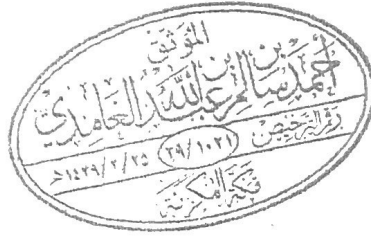 الموثق
أحمد بن سالم بن عبدالله الغامدي
رقم الترخيص ٢٩/١٠٢١ ١٤٢٩/٢/٢٥هـ
مكة المكرمة